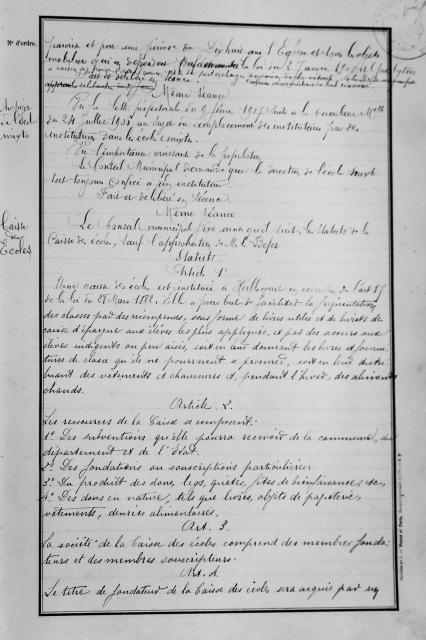 N° d'ordre.
paroisse et pour une période de Dix huit ans l'Eglise et tous les objets
mobiliers qui en dépendent conformément à la loi du 2 Janvier 1907
Fait et délibéré en séance
Même séance
Vu la lettre préfectorale du 9 Janvier 1907 suite à la Circulaire Mlle
du 24 Juillet 1905 au sujet du remplacement des instituteurs par des
institutrices dans les écoles mixtes.
Vu l'importance croissante de la population
Le Conseil Municipal demande que la direction de l'école mixte
soit toujours confiée à un instituteur.
Fait et délibéré en séance
Même séance
Caisse
des
Ecoles
Le Conseil municipal fixe ainsi qu'il suit, les statuts de la
Caisse des écoles, sauf l'approbation de M. le Préfet
Statuts
Article 1er
Une caisse des écoles est instituée à en exécution de l'art 17
de la loi du 28 Mars 1882. Elle a pour but de faciliter la fréquentation
des classes par des récompenses, sous forme de livres utiles et de livrets de
caisse d'épargne aux élèves les plus appliqués, et par des secours aux
élèves indigents ou peu aisés, soit en leur donnant les livres et fourni-
tures de classe qu'ils ne pourraient se procurer, soit en leur distri-
buant des vêtements et chaussures et, pendant l'hiver, des aliments
chauds.
Article 2.
Les ressources de la Caisse se composent:
1° Des subventions qu'elle pourra recevoir de la commune, du
département et de l'Etat.
2° Des fondations ou souscriptions particulières
3° Du produit des dons, legs, quêtes, fêtes de bienfaisance, etc.
4° Des dons en nature, tels que livres, objets de papeterie,
vêtements, denrées alimentaires.
Art. 3.
La société de la Caisse des écoles comprend des membres fonda-
teurs et des membres souscripteurs.
Art. 4.
Le titre de fondateur de la Caisse des écoles sera acquis par un